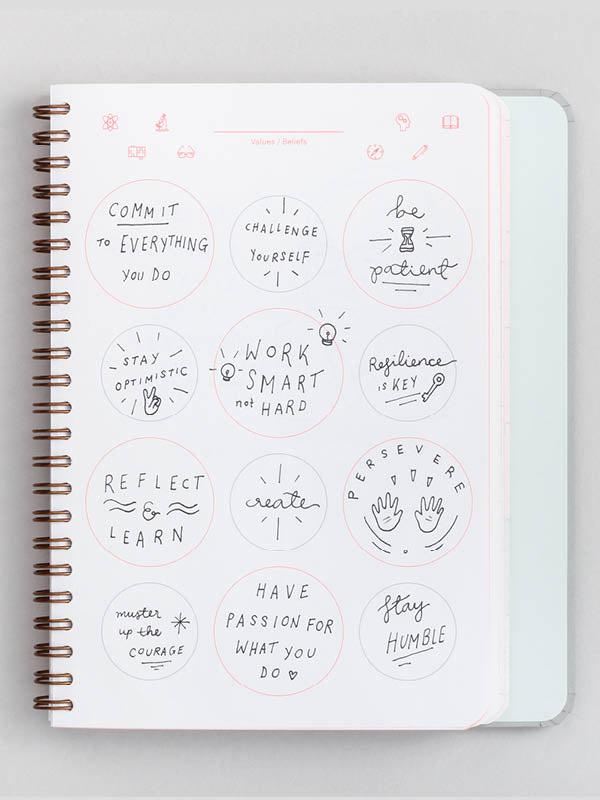 Values / Beliefs
COMMIT
TO EVERYTHING
YOU DO
CHALLENGE
YOURSELF
be
patient
STAY
OPTIMISTIC
WORK
SMART
not HARD
Resilience
IS KEY
REFLECT
&
LEARN
create
PERSEVERE
muster
up the
COURAGE
HAVE
PASSION FOR
WHAT YOU
DO
stay
HUMBLE